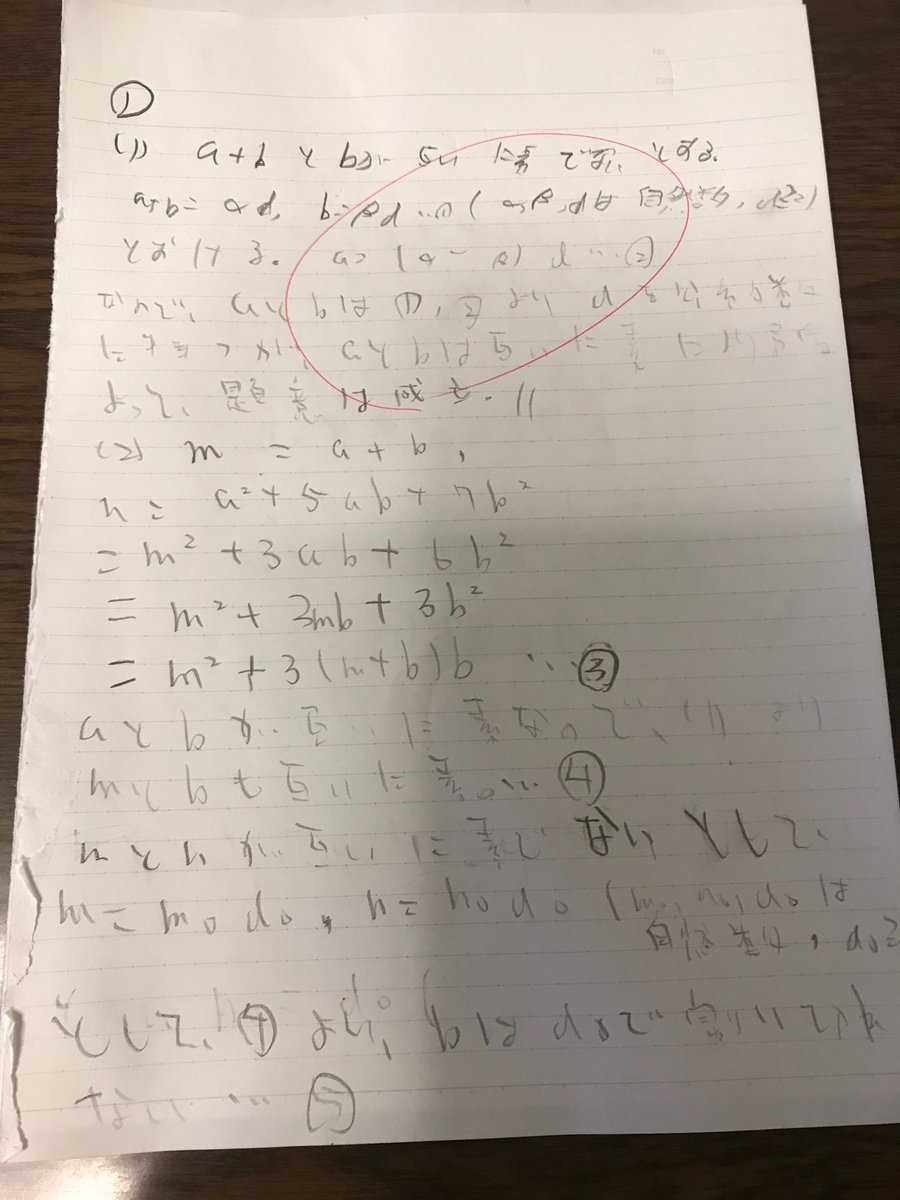 ①
(1) a+b と bが 互いに素でないとする。
a+b=αd, b=βd …① (α,β,dは自然数, d≧2)
とおける。 a=(α-β)d …②
aとbは①,②よりdを公約数
aとbは互いに素
よって、題意は示
(2) m = a+b,
n = a²+5ab+7b²
= m²+3ab+6b²
= m²+3mb+3b²
= m²+3(m+b)b …③
aとbが互いに素なので、(1)より
mとbも互いに素。…④
mとnが互いに素でないとして、
m=m₀d₀, n=n₀d₀ (m₀,n₀,d₀は
自然数, d₀≧
として、④より、bはd₀で
ない …⑤